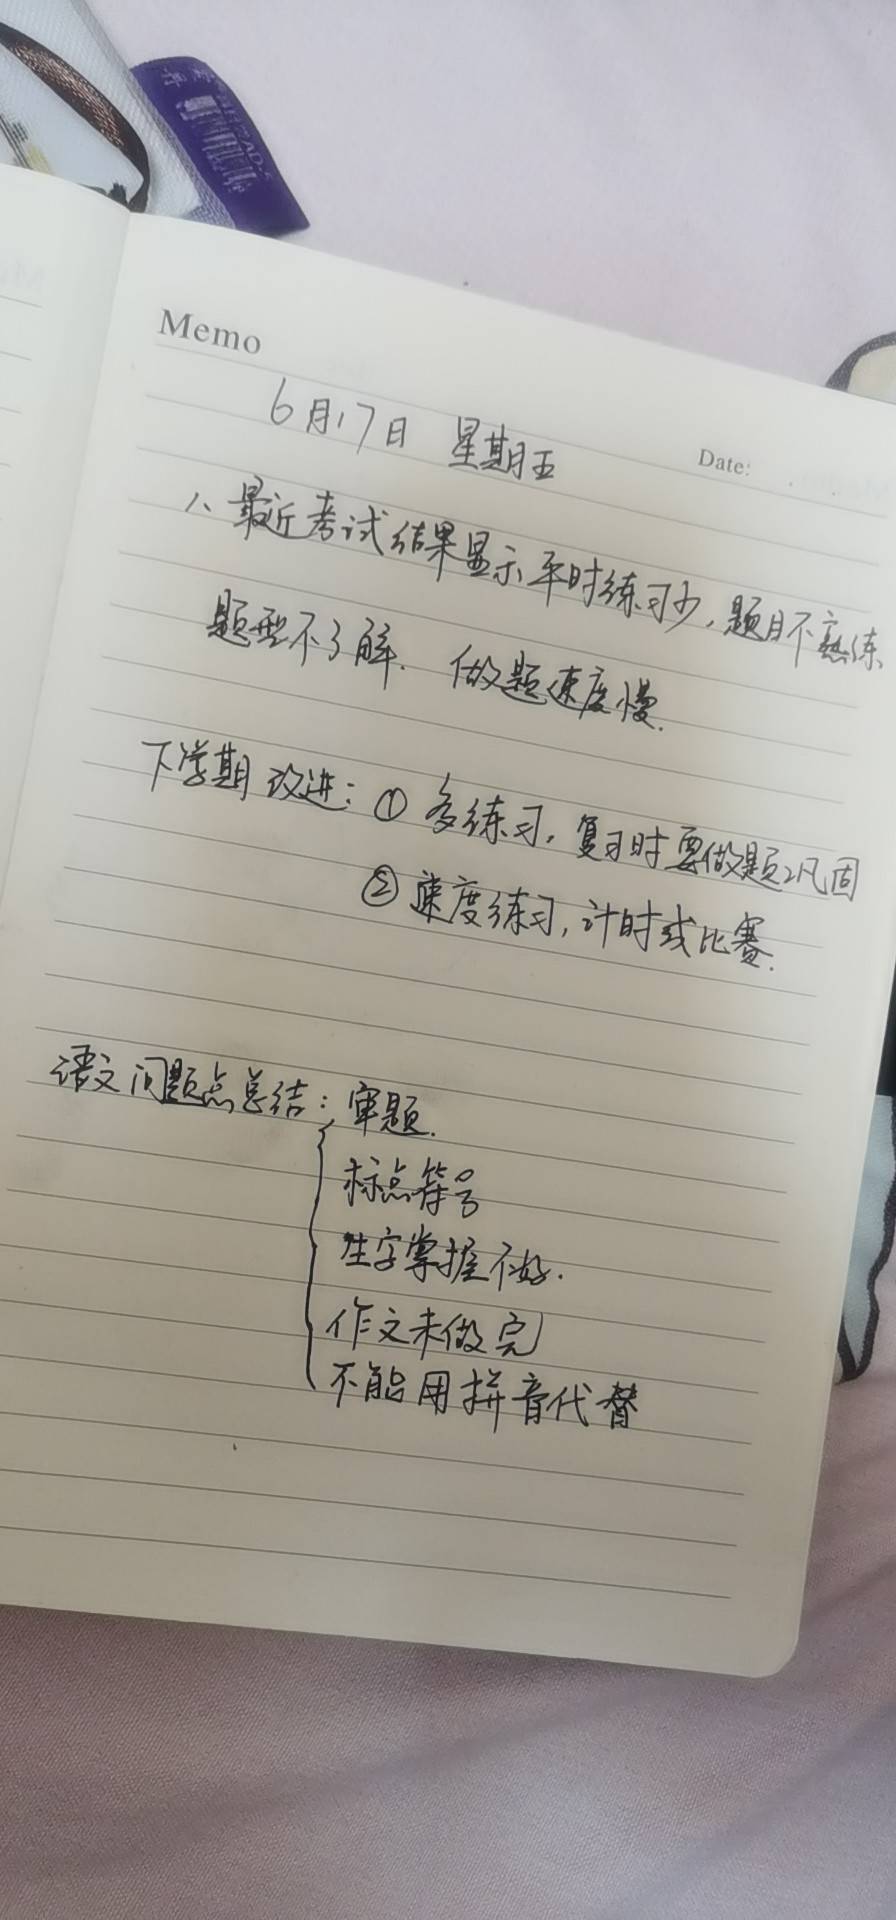 Memo
6月17日 星期五
Date:
1、最近考试结果显示平时练习少,题目不熟练、
题型不了解. 做题速度慢.
下学期改进:① 多练习,复习时要做题巩固
② 速度练习,计时或比赛.
语文问题点总结:审题.
标点符号
生字掌握不好.
作文未做完
不能用拼音代替